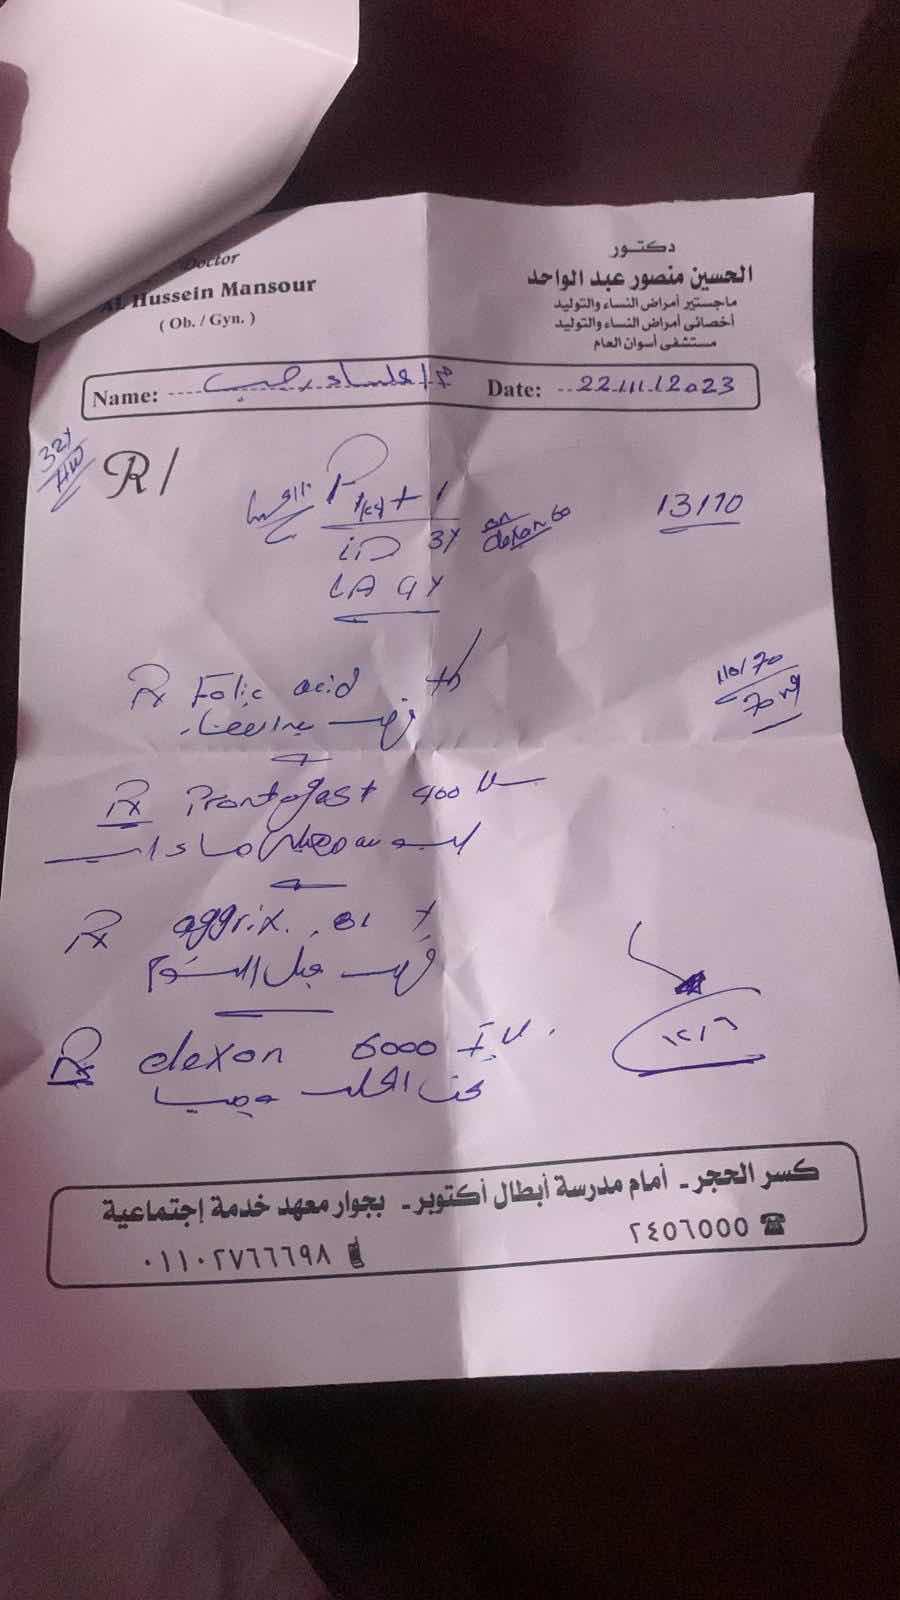 Doctor
AL Hussein Mansour
( Ob. / Gyn. )
دكتور
الحسين منصور عبد الواحد
ماجستير أمراض النساء والتوليد
أخصائى أمراض النساء والتوليد
مستشفى أسوان العام
Name:
Date: 22/11/2023
32y
HW
R/
13/10
LD 3y on dexon 60
LA 9y
110/70
70 kg
Rx Folic acid
قرص بعد الغداء
Rx Prontogast 400
Rx aggrex. 81
قرص قبل النوم
١٢/٦
Rx dexon 6000 I.U.
تحت الجلد يوميا
كسر الحجر - أمام مدرسة أبطال أكتوبر - بجوار معهد خدمة إجتماعية
٢٤٥٦٠٠٠
٠١١٠٢٧٦٦٦٩٨